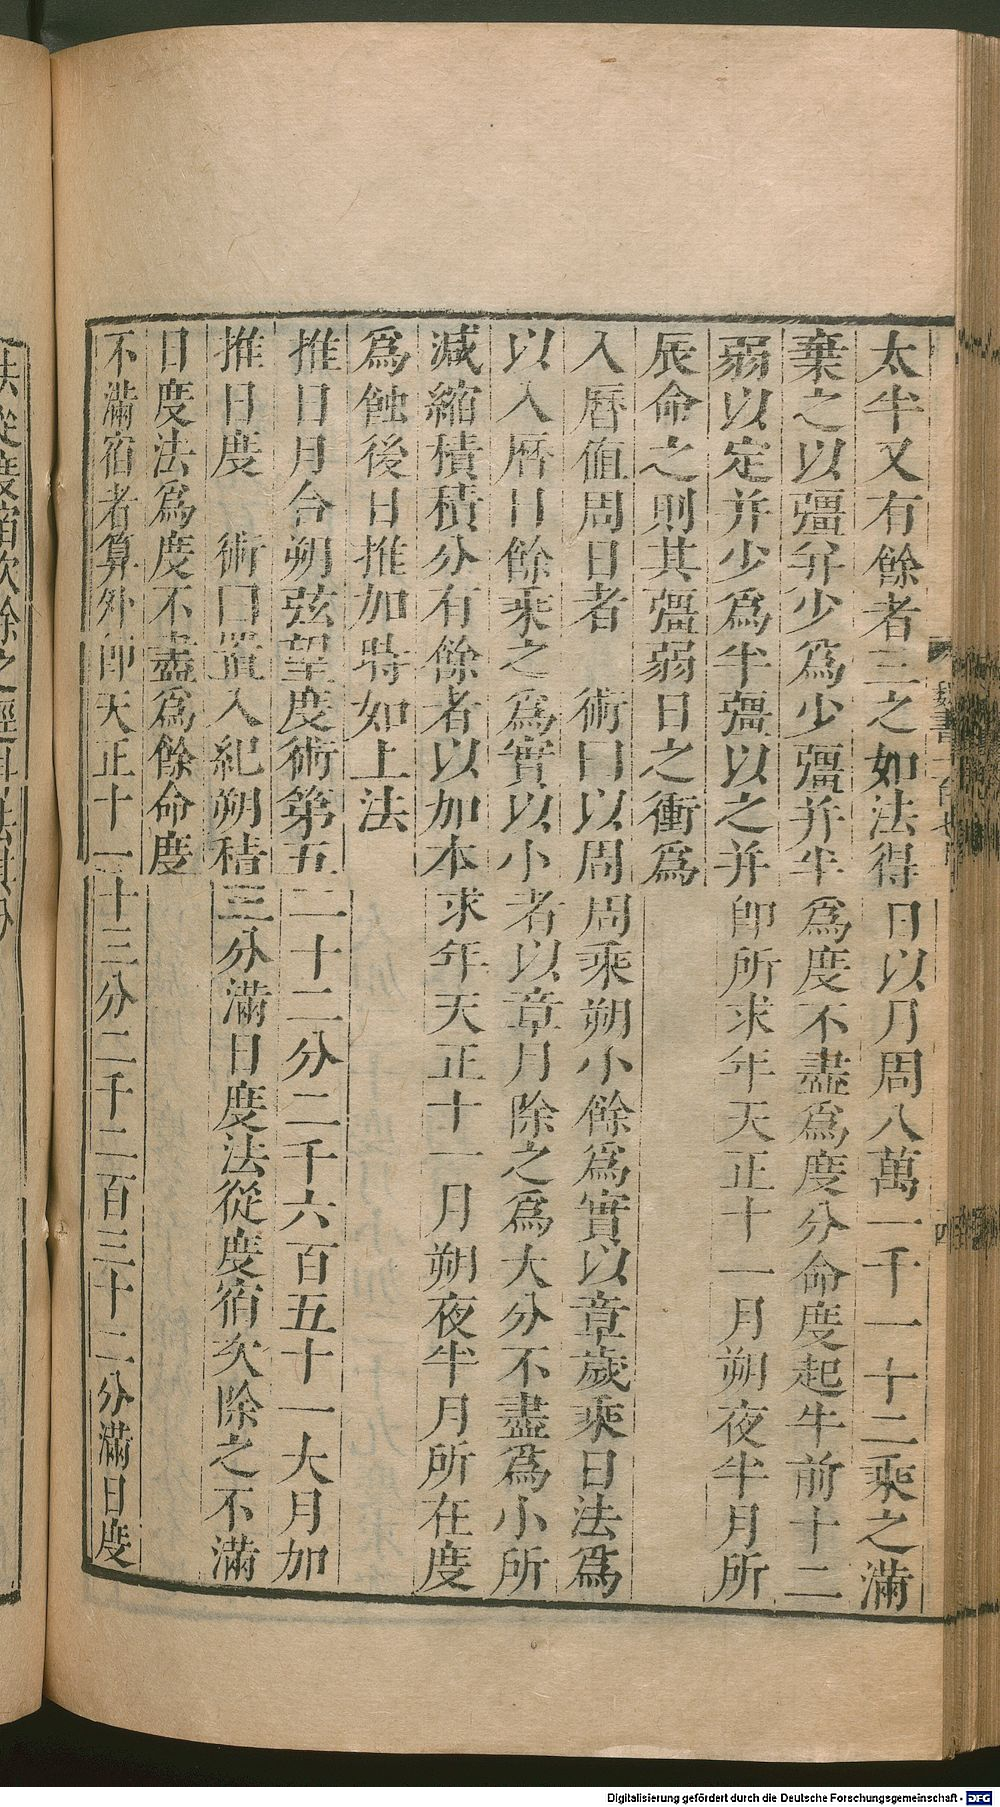 太半又有餘者三之如法得日以月周八萬一千一十二乘之滿
棄之以彊并少爲少彊并半爲度不盡爲度分命度起牛前十二
弱以定并少爲半彊以之并卽所求年天正十一月朔夜半月所
辰命之則其彊弱日之衝爲
入曆值周日者　術曰以周周乘朔小餘爲實以章歲乘日法爲
以入曆日餘乘之爲實以小者以章月除之爲大分不盡爲小所
減縮積積分有餘者以加本求年天正十一月朔夜半月所在度
爲蝕後日推加時如上法
推日月合朔弦望度術第五二十二分二千六百五十一大月加
推日度　術曰置入紀朔積三分滿日度法從度宿次除之不滿
日度法爲度不盡爲餘命度
不滿宿者算外卽天正十一十三分二千二百三十二分滿日度
魏書
四
法從度宿次除之
Digitalisierung gefördert durch die Deutsche Forschungsgemeinschaft - DFG